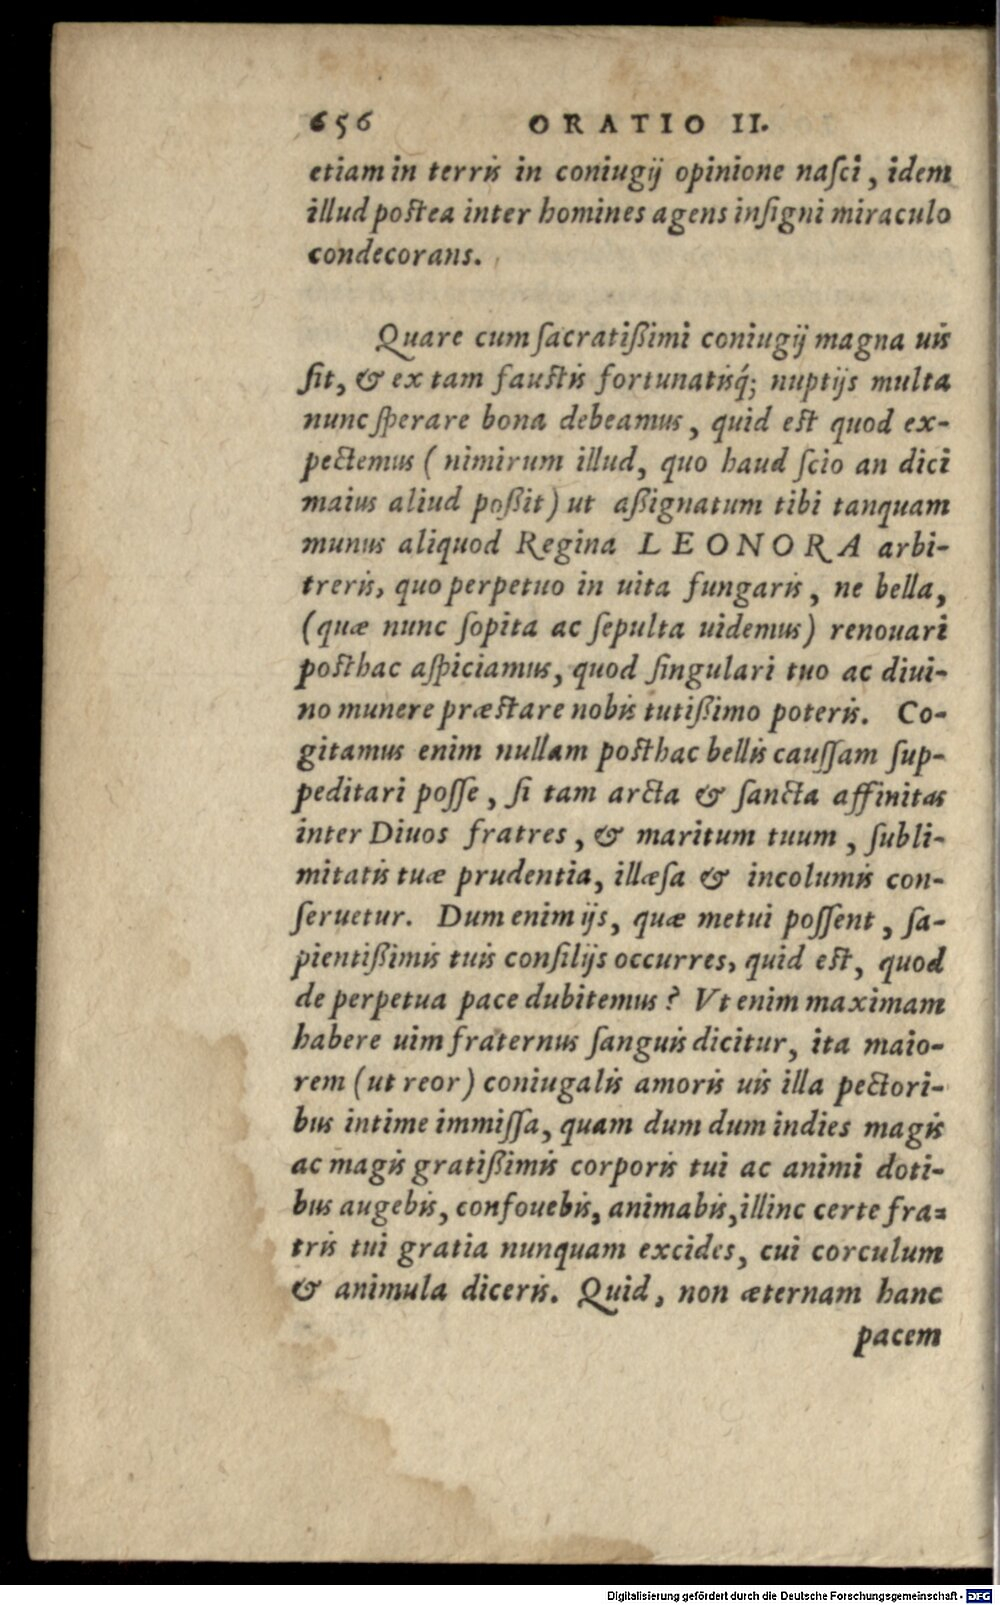 656 ORATIO II.
etiam in terris in coniugij opinione nasci, idem
illud postea inter homines agens insigni miraculo
condecorans.
Quare cum sacratißimi coniugij magna uis
sit, & ex tam faustis fortunatisq́; nuptijs multa
nunc sperare bona debeamus, quid est quod ex-
pectemus (nimirum illud, quo haud scio an dici
maius aliud poßit) ut aßignatum tibi tanquam
munus aliquod Regina LEONORA arbi-
treris, quo perpetuo in uita fungaris, ne bella,
(quæ nunc sopita ac sepulta uidemus) renouari
posthac aspiciamus, quod singulari tuo ac diui-
no munere præstare nobis tutißimo poteris. Co-
gitamus enim nullam posthac bellis caussam sup-
peditari posse, si tam arcta & sancta affinitas
inter Diuos fratres, & maritum tuum, subli-
mitatis tuæ prudentia, illæsa & incolumis con-
seruetur. Dum enim ijs, quæ metui possent, sa-
pientißimis tuis consilijs occurres, quid est, quod
de perpetua pace dubitemus? Vt enim maximam
habere uim fraternus sanguis dicitur, ita maio-
rem (ut reor) coniugalis amoris uis illa pectori-
bus intime immissa, quam dum dum indies magis
ac magis gratißimis corporis tui ac animi doti-
bus augebis, confouebis, animabis, illinc certe fra=
tris tui gratia nunquam excides, cui corculum
& animula diceris. Quid, non æternam hanc
pacem
Digitalisierung gefördert durch die Deutsche Forschungsgemeinschaft - DFG